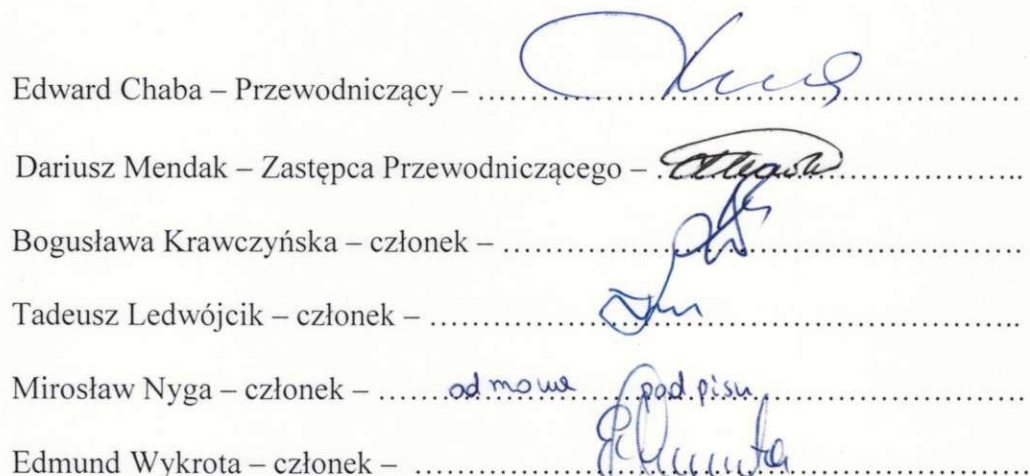 Edward Chaba – Przewodniczący – ……………………………………
Dariusz Mendak – Zastępca Przewodniczącego – ……………………………
Bogusława Krawczyńska – członek – ……………………………………
Tadeusz Ledwójcik – członek – ……………………………………
Mirosław Nyga – członek – ……odmowa podpisu……………………
Edmund Wykrota – członek – ……………………………………